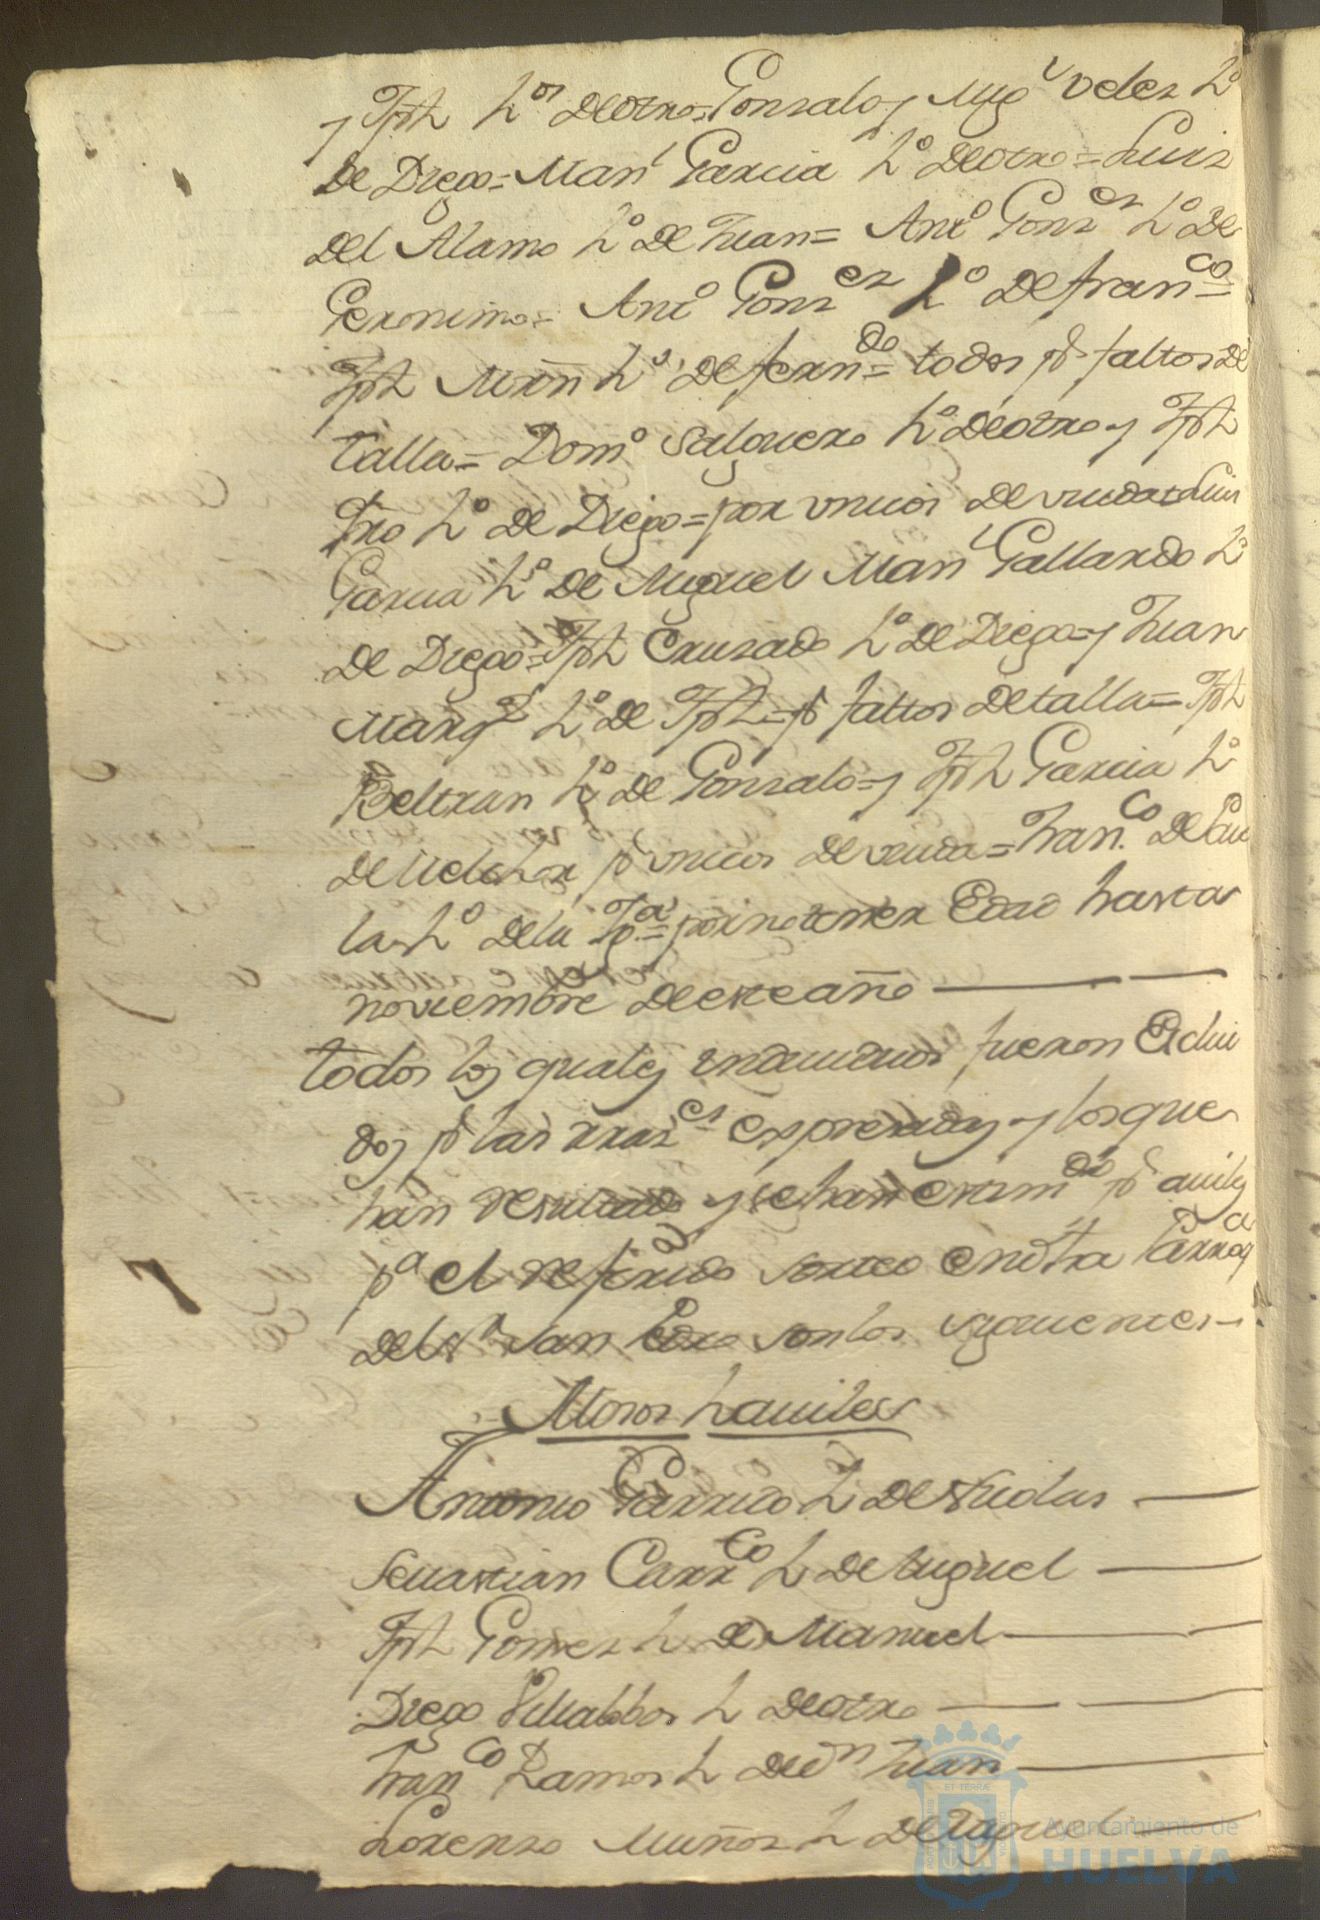 y Jph h.os de otro = Gonzalo y Mig.l Velez h.o
de Diego = Man.l Garcia h.o de otro = Luis
del Alamo h.o de Juan = Ant.o Gonz.ez h.o de
Geronimo = Ant.o Gonz.ez h.o de Fran.co =
Jph Mrñ h.o de Fern.do = todos p.r faltos de
talla = Dom.o Salguero h.o de otro y Jph
h.o de Diego = por unicos de viuda = Luis
Garcia h.o de Miguel Man.l Gallardo h.o
de Diego = Jph Cruzado h.o de Diego = y Juan
Marq.z h.o de Jph = p.r faltos de talla = Jph
Beltran h.o de Gonzalo = y Jph Garcia h.o
de Melchor p.r unicos de viuda = Fran.co de
la h.o de la Ig.a = por no tener edad hasta
noviembre de este año
todos los quales individuos fueron exclui
dos p.r las rraz.es expresadas y los que
han resultado y se han estim.do p.r auiles
p.a el referido sorteo en dha Parroq.a
del S.r San Pedro son los siguientes
Mosos hauiles
Antonio Garrido h de Nicolas
Seuastian Carr.co h de Miguel
Jph Gomez h de Manuel
Diego Villalobos h de otro
Fran.co Ramos h de d.n Juan
Lorenzo Muños h de Miguel
Ayuntamiento de
HUELVA